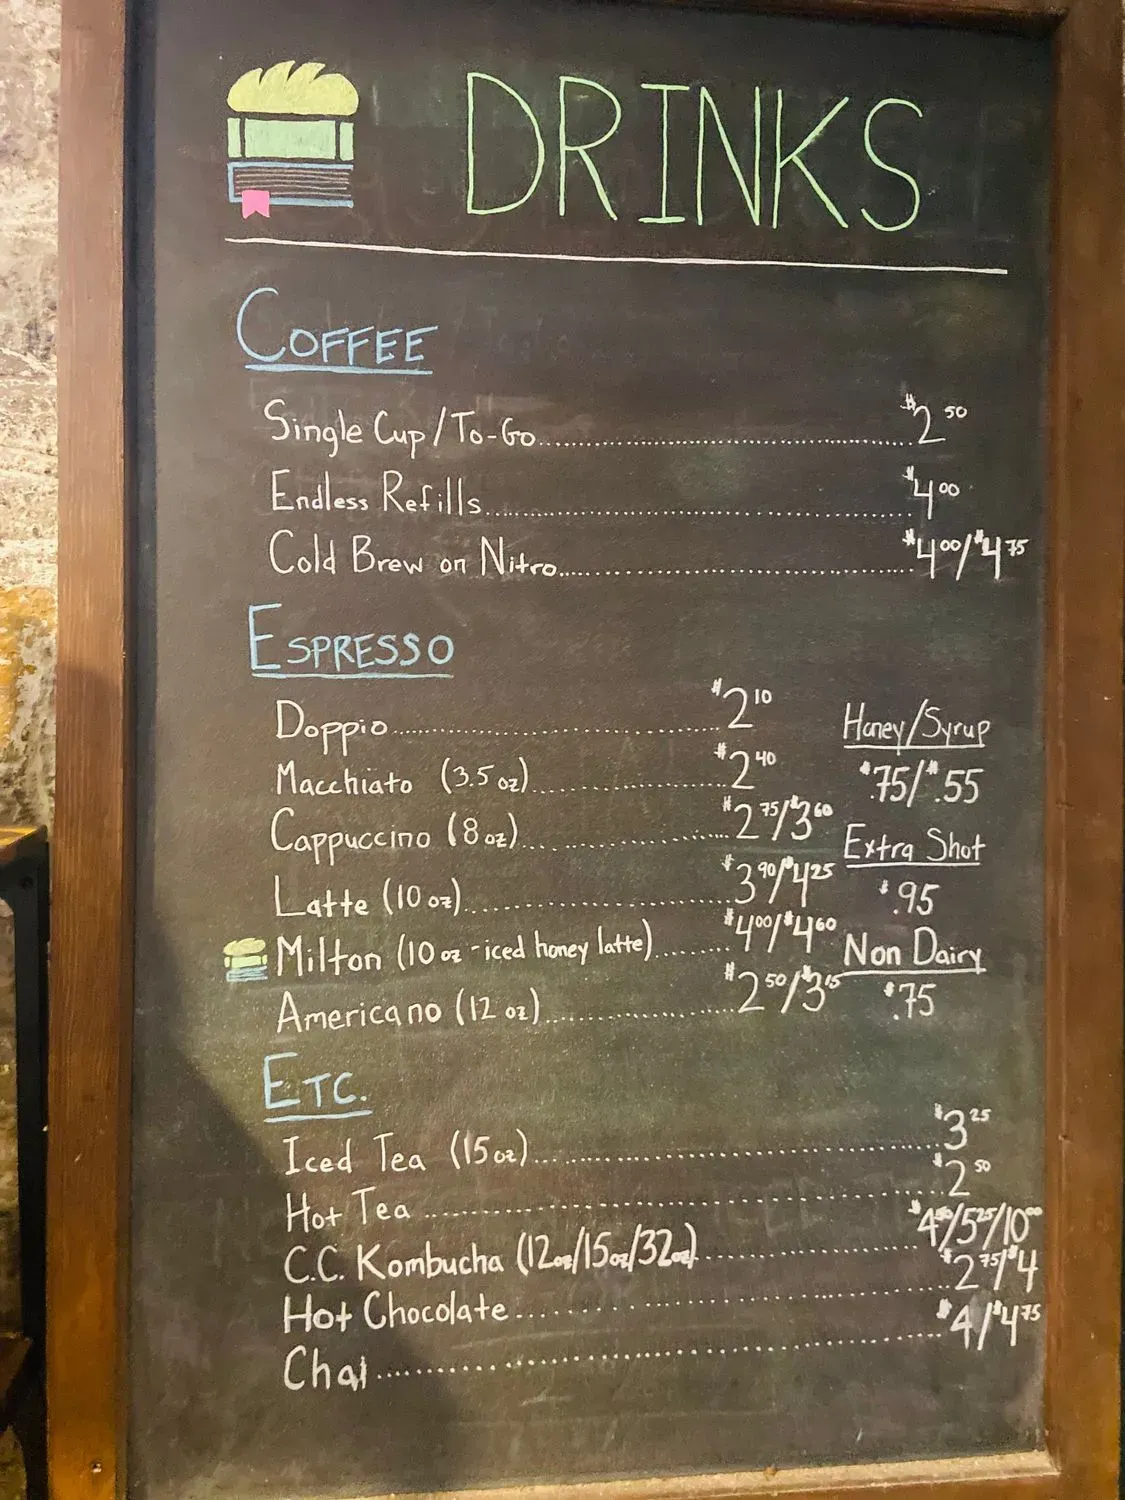 DRINKS
COFFEE
Single Cup/To-Go.................... $2 50
Endless Refills.................... $4 00
Cold Brew on Nitro.................... $4 00/$4 75
ESPRESSO
Doppio.................... $2 10
Macchiato (3.5 oz).................... $2 40
Cappuccino (8 oz).................... $2 75/$3 60
Latte (10 oz).................... $3 90/$4 25
Milton (10 oz - iced honey latte).......... $4 00/$4 60
Americano (12 oz).................... $2 50/$3 15
Honey/Syrup
$.75/$.55
Extra Shot
$.95
Non Dairy
$.75
ETC.
Iced Tea (15 oz).................... $3 25
Hot Tea .................... $2 50
C.C. Kombucha (12oz/15oz/32oz).......... $4 50/5 25/10 00
Hot Chocolate.................... $2 75/$4
Chai.................... $4/$4 75